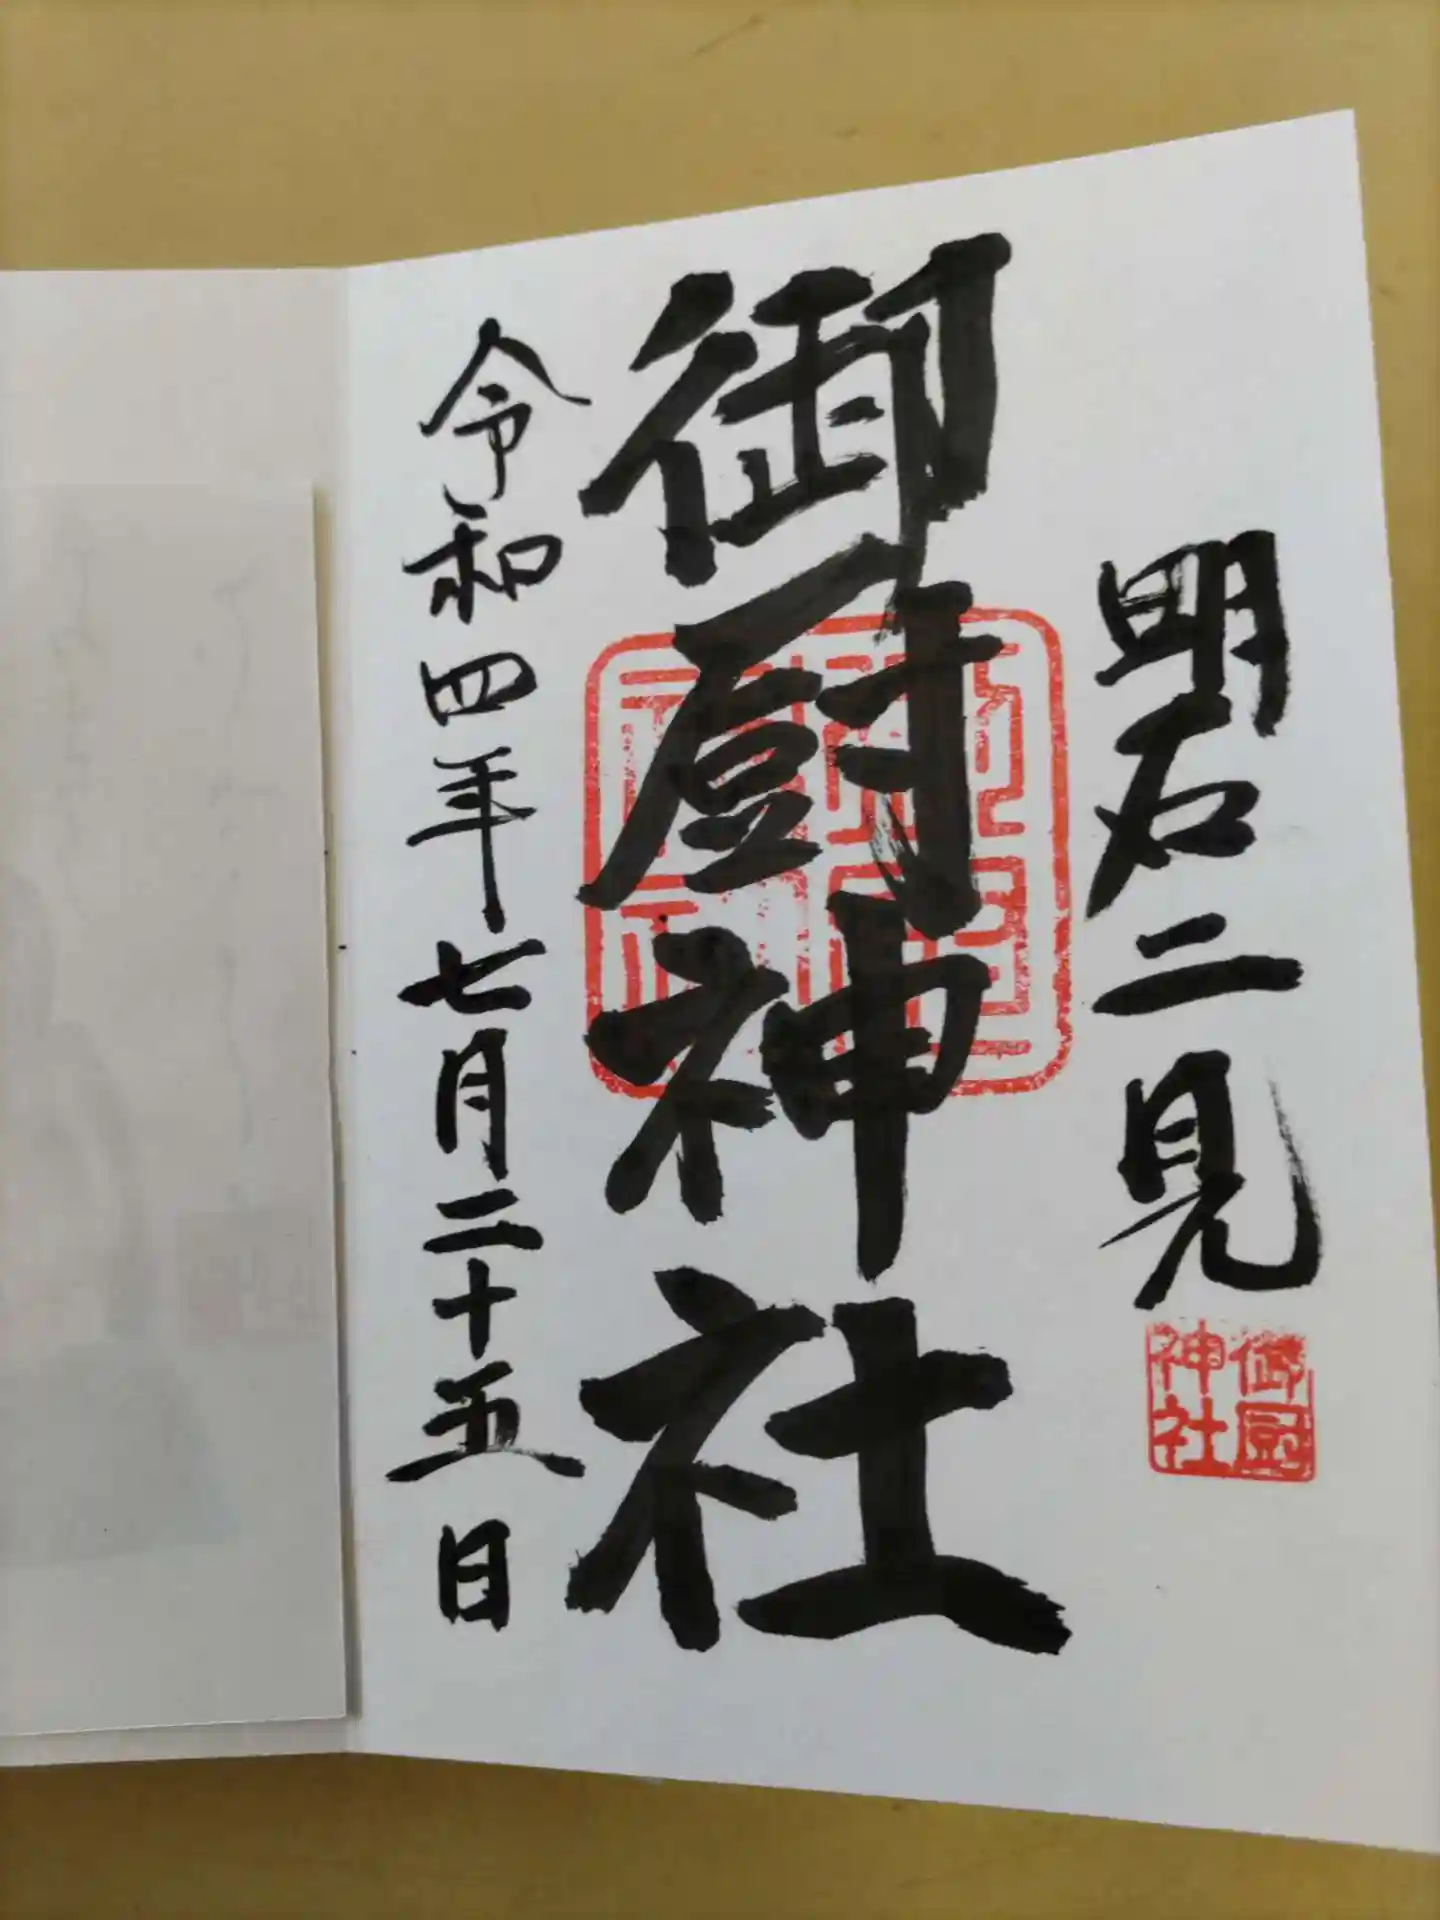 明石二見
御厨神社
御厨神社
令和四年七月二十五日